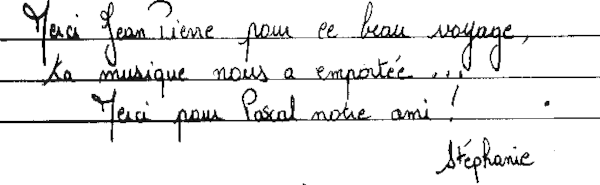 Merci Jean Pierre pour ce beau voyage,
ta musique nous a emportée...
Merci pour Pascal notre ami !
Stéphanie